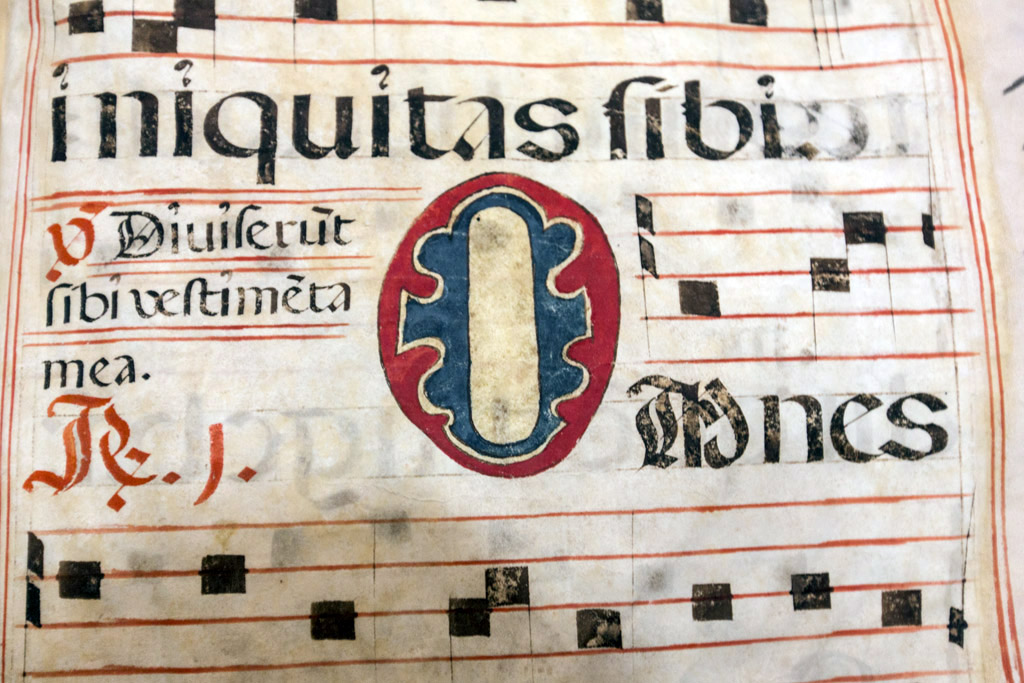 iniquitas sibi.
℣ Diuiserūt
sibi vestimēta
mea.
℟. j.
OMnes